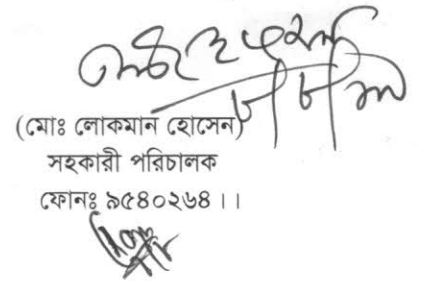 (মোঃ লোকমান হোসেন)
সহকারী পরিচালক
ফোনঃ ৯৫৪০২৬৪।।